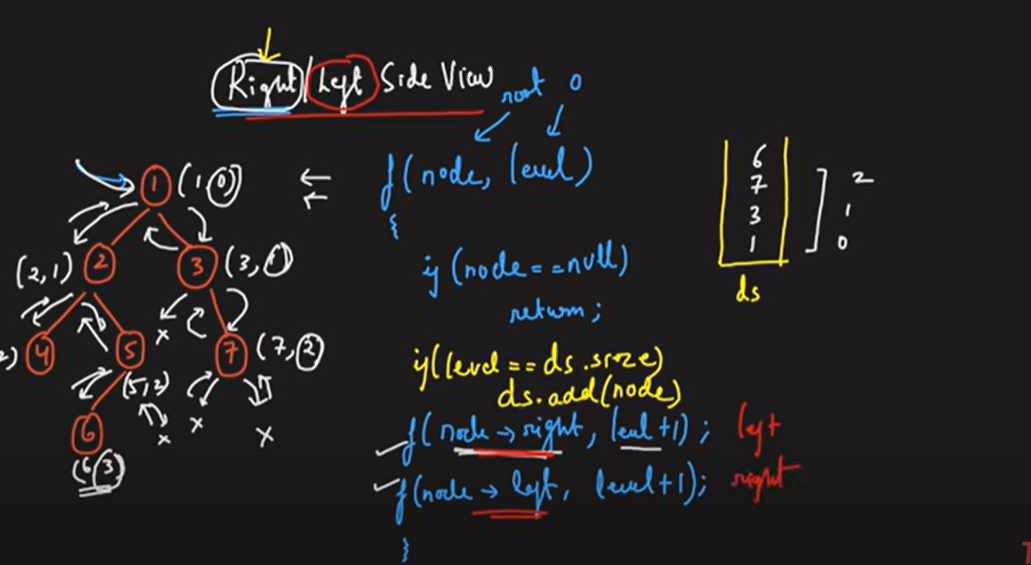 Right/Left Side View
root 0
f(node, level)
{
if (node==null)
return;
if(level == ds.size)
ds.add(node)
f(node→right, level+1); left
f(node→left, level+1); right
}
1 (1,0)
(2,1) 2 3 (3,1)
2) 4 5 7 (7,2)
(5,2)
x x x x
6
(6,3)
6
7 2
3 1
1 0
ds